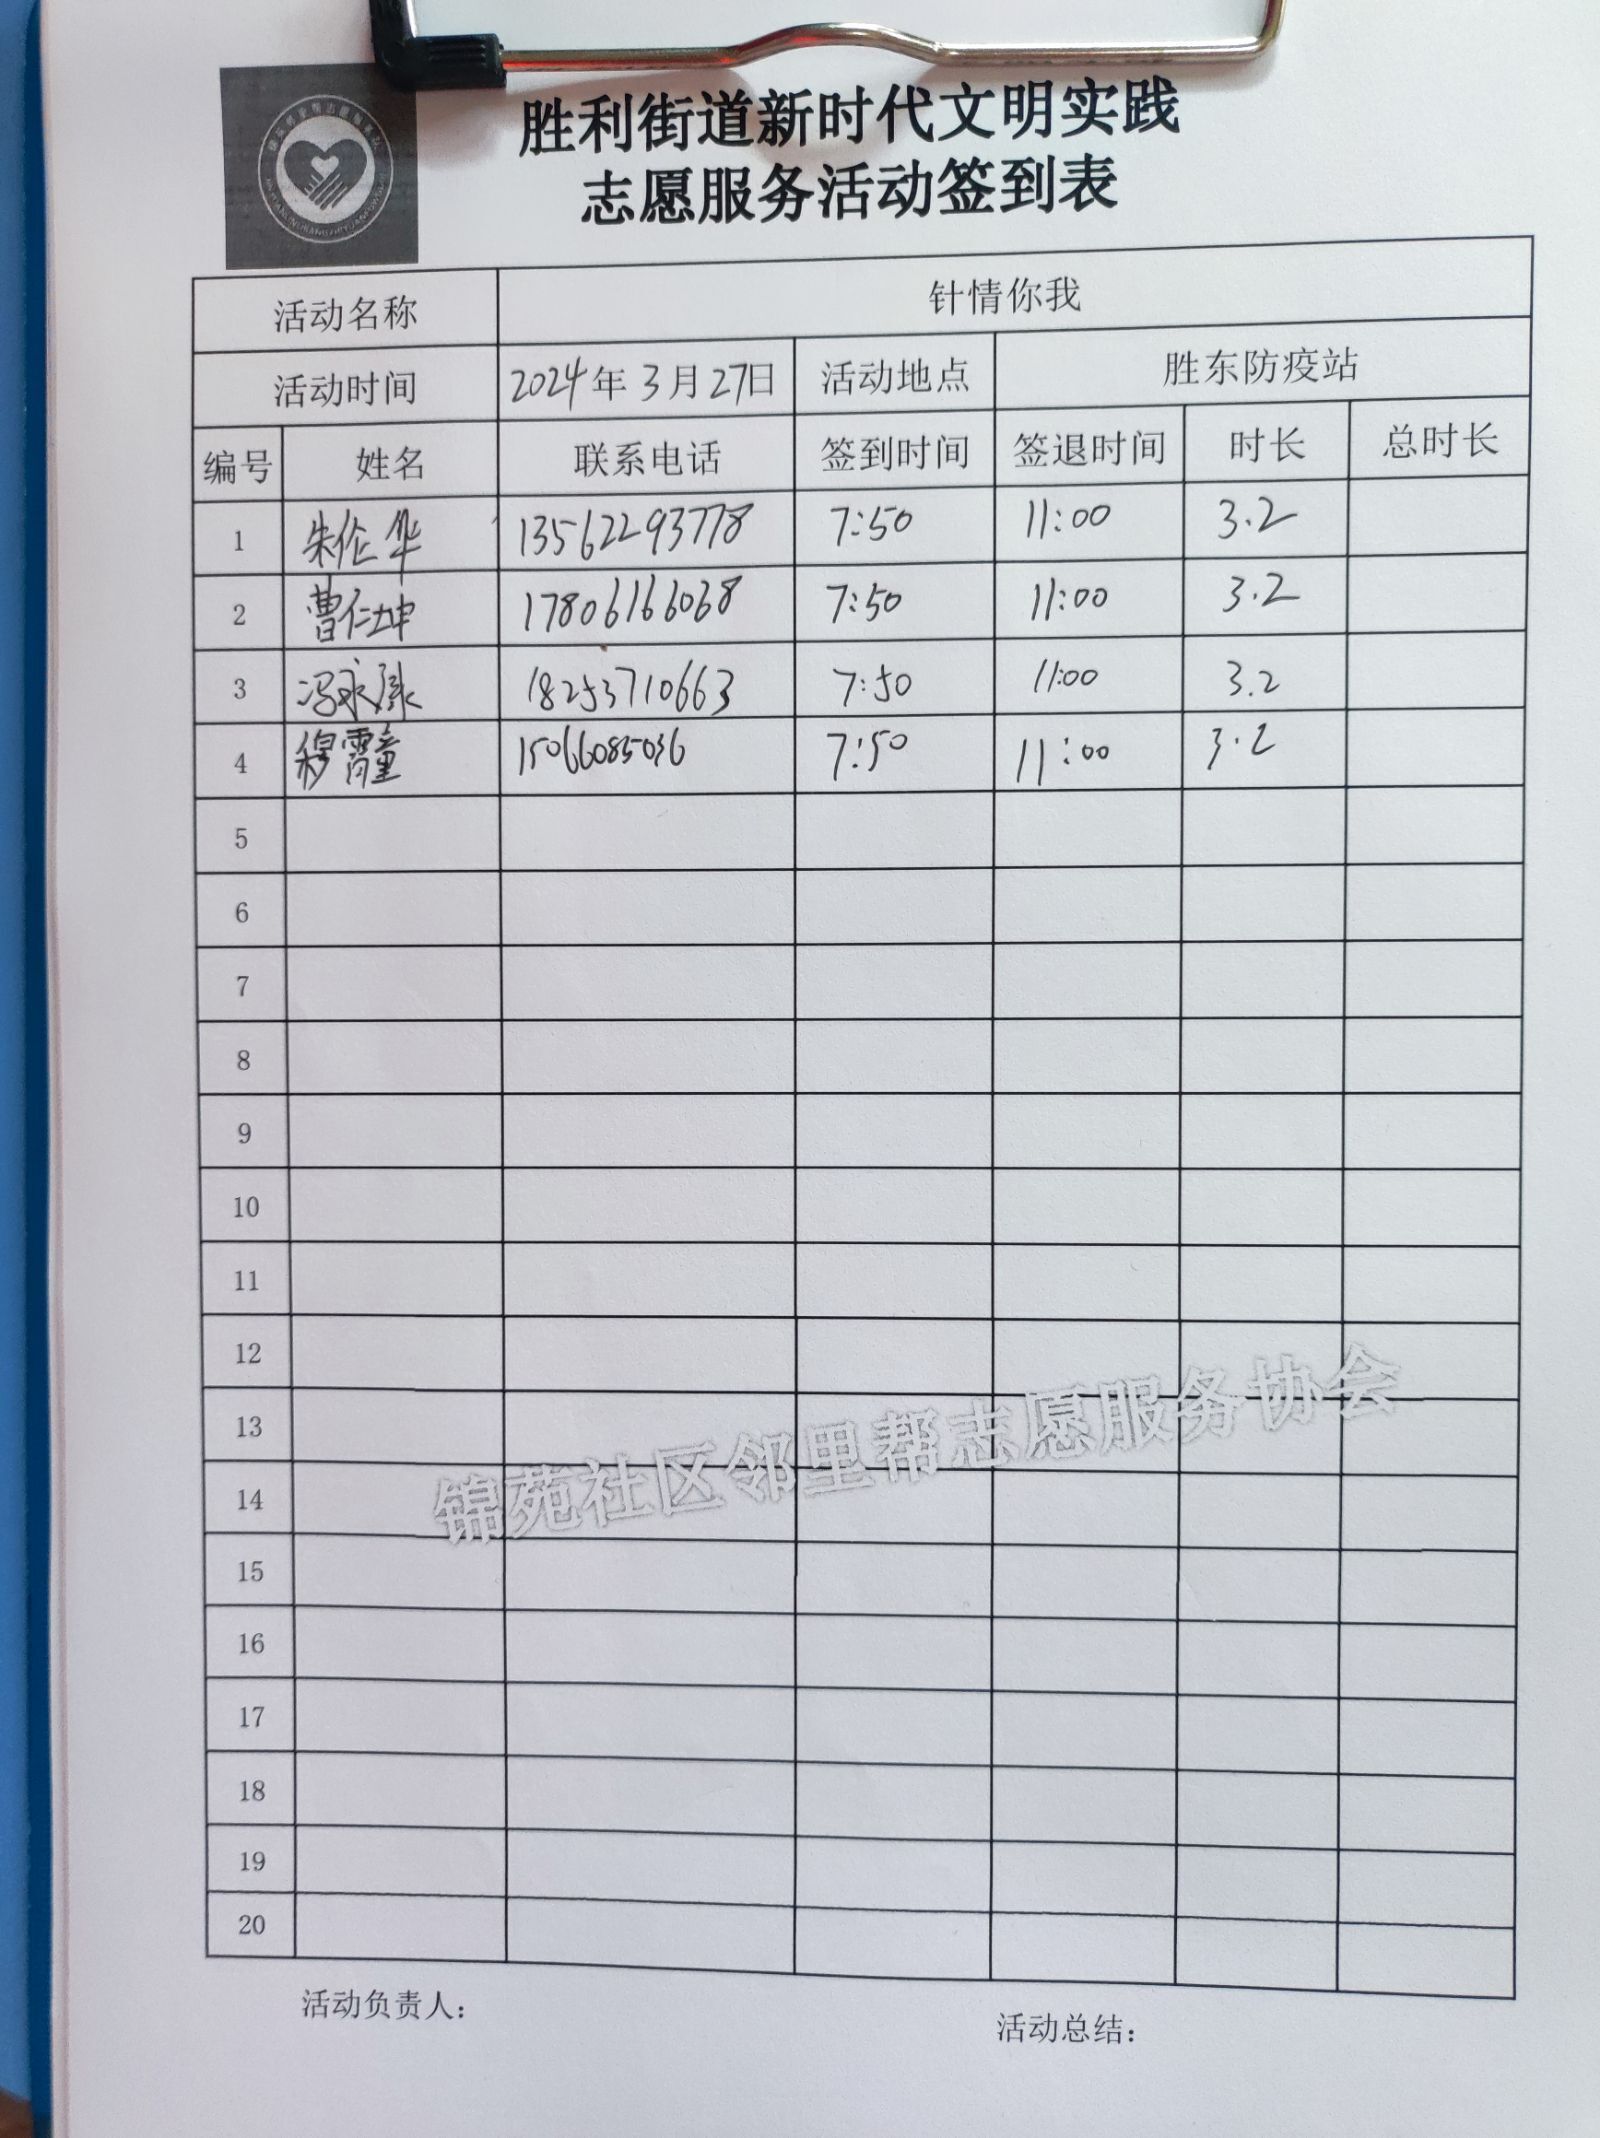 胜利街道新时代文明实践
志愿服务活动签到表
活动名称 针情你我
活动时间 2024年3月27日 活动地点 胜东防疫站
编号 姓名 联系电话 签到时间 签退时间 时长 总时长
1 朱伦华 13562293778 7:50 11:00 3.2
2 曹仁坤 17806166068 7:50 11:00 3.2
3 冯永康 18253710663 7:50 11:00 3.2
4 穆霄童 15066085036 7:50 11:00 3.2
5
6
7
8
9
10
11
12
13
14
15
16
17
18
19
20
锦苑社区邻里帮志愿服务协会
活动负责人：
活动总结：